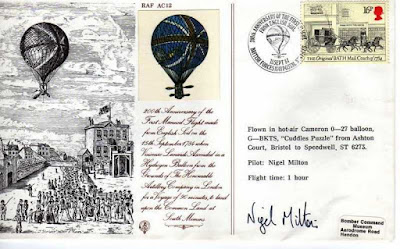 RAF AC12
200th Anniversary of the
First Manned Flight made
from English Soil on the
15th September 1784 when
Vincenzo Lunardi Ascended in a
Hydrogen Balloon from the
Grounds of The Honourable
Artillery Company in London
for a Voyage of 90 minutes, to land
upon the Common Land at
South Mimms
200th ANNIVERSARY OF THE FIRST
FROM ENGLISH SOIL
15 SEPT 84
BRITISH FORCES
16P
The Original BATH Mail Coach of 1784
Flown in hot-air Cameron 0—27 balloon,
G—BKTS, "Cuddles Puzzle" from Ashton
Court, Bristol to Speedwell, ST 6275.
Pilot: Nigel Milton
Flight time: 1 hour
Nigel Milton
Bomber Command
Museum
Aerodrome Road
Hendon